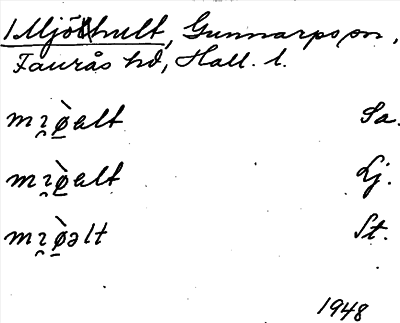 1 Mjöhult, Gunnarps sn,
Faurås hd, Hall. l.
mı̯ø̀alt Sa.
mı̯ø̀alt Lj.
mı̯ø̀əlt St.
1948